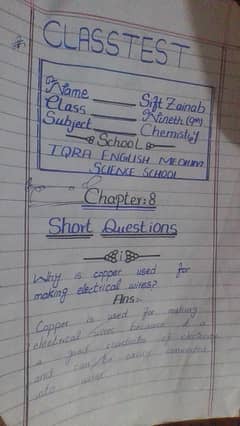 CLASSTEST
Name Sift Zainab
Class Nineth (9th)
Subject Chemistry
School
IQRA ENGLISH MEDIUM
SCIENCE SCHOOL
Chapter:8
Short Questions
i
Why is copper used for
making electrical wires?
Ans:-
Copper is used for making
electrical wires because it is
a good conductor of electricity
and can be easily converted
into wires